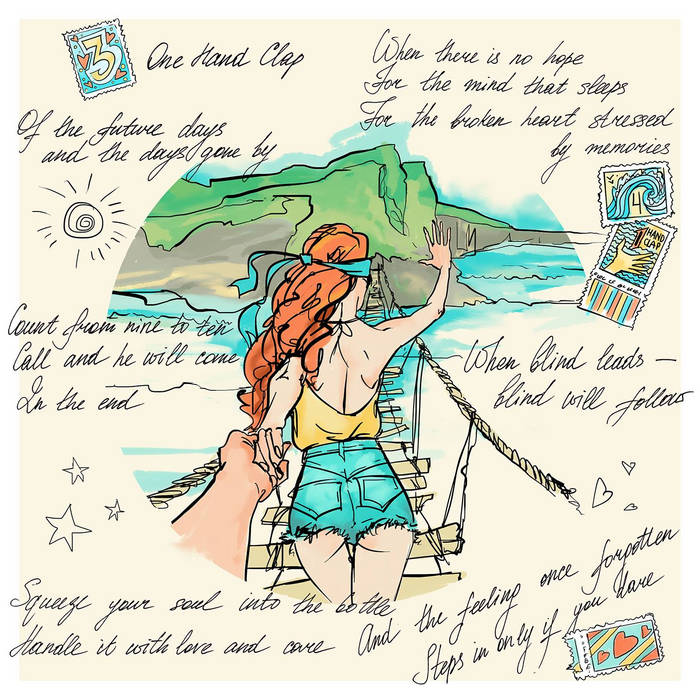 3
One Hand Clap
When there is no hope
For the mind that sleeps
For the broken heart stressed
by memories
Of the future days
and the days gone by
4
HAND
CLAP
Count from nine to ten
Call and he will come
In the end
When blind leads —
blind will follow
Squeeze your soul into the bottle
Handle it with love and care
And the feeling once forgotten
Steps in only if you dare